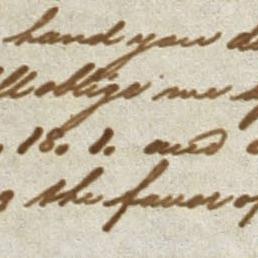 hand you
oblige me
18. 1. and
the favor of